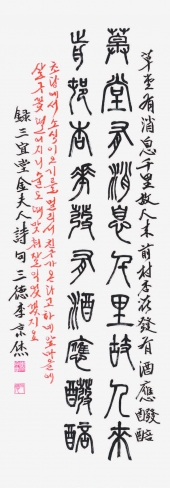 草堂有消息千里故人來前村杏花發有酒應醱醅
草堂有消息千里故人來
前邨杏花發有酒應醱醅
초당에서 소식이 오기를 멀리서 친구가 온다고 하네 앞마을에
살구꽃 피어나니 술도 때 맞춰 잘 익었겠지요
録三宜堂金夫人詩句 三德李京杰